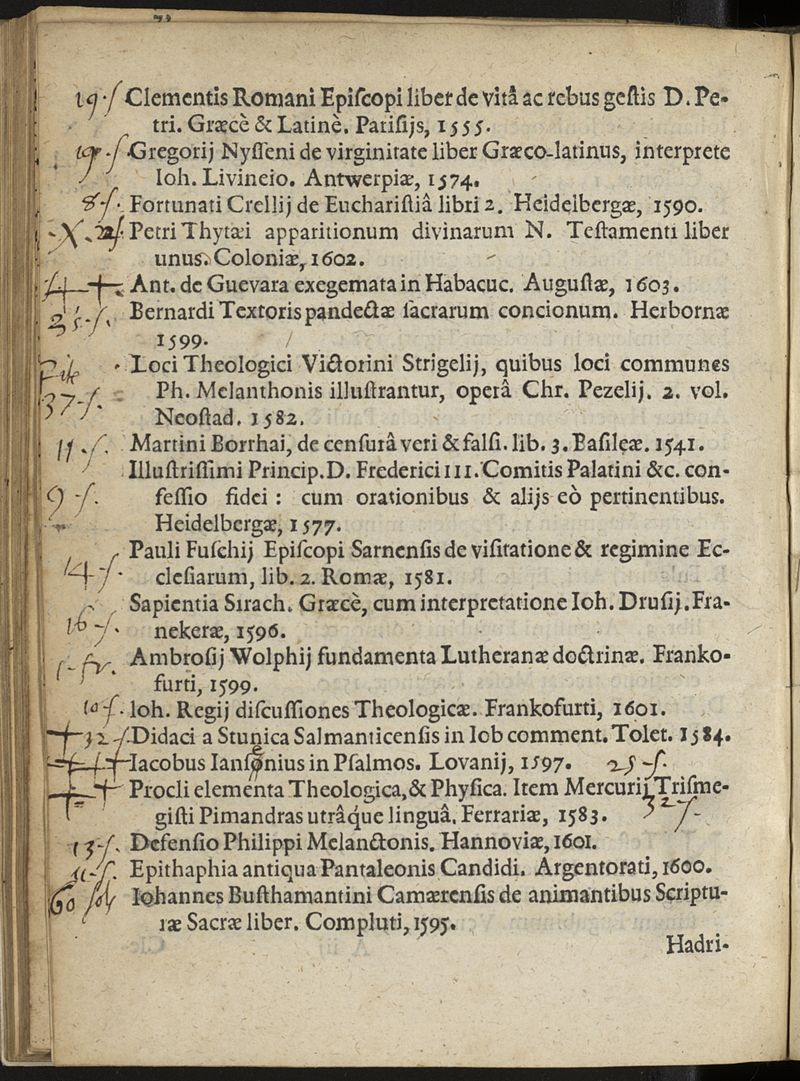 19-ſ Clementis Romani Epiſcopi liber de vitâ ac rebus geſtis D. Pe-
tri. Græcè & Latinè. Pariſijs, 1555.
19-ſ Gregorij Nyſſeni de virginitate liber Græco-latinus, interprete
Ioh. Livineio. Antwerpiæ, 1574.
8-ſ. Fortunati Crellij de Euchariſtiâ libri 2. Heidelbergæ, 1590.
Petri Thyræi apparitionum divinarum N. Teſtamenti liber
unus. Coloniæ, 1602.
Ant. de Guevara exegemata in Habacuc. Auguſtæ, 1603.
35-ſ. Bernardi Textoris pandectæ ſacrarum concionum. Herbornæ
1599.
Loci Theologici Victorini Strigelij, quibus loci communes
37-ſ. Ph. Melanthonis illuſtrantur, operâ Chr. Pezelij. 2. vol.
Neoſtad. 1582.
11-ſ. Martini Borrhai, de cenſurâ veri & falſi. lib. 3. Baſileæ. 1541.
Illuſtriſſimi Princip. D. Frederici III. Comitis Palatini &c. con-
9-ſ. feſſio fidei : cum orationibus & alijs eò pertinentibus.
Heidelbergæ, 1577.
Pauli Fuſchij Epiſcopi Sarnenſis de viſitatione & regimine Ec-
14-ſ. cleſiarum, lib. 2. Romæ, 1581.
Sapientia Sirach. Græcè, cum interpretatione Ioh. Druſij. Fra-
16-ſ. nekeræ, 1596.
Ambroſij Wolphij fundamenta Lutheranæ doctrinæ. Franko-
furti, 1599.
10-ſ. Ioh. Regij diſcuſſiones Theologicæ. Frankofurti, 1601.
32-ſ. Didaci a Stunica Salmanticenſis in Iob comment. Tolet. 1584.
Iacobus Ianſonius in Pſalmos. Lovanij, 1597. 25-ſ.
Procli elementa Theologica, & Phyſica. Item Mercurij Triſme-
giſti Pimandras utrâque linguâ. Ferrariæ, 1583. 32-ſ-
13-ſ. Defenſio Philippi Melanctonis. Hannoviæ, 1601.
Epithaphia antiqua Pantaleonis Candidi. Argentorati, 1600.
60 Iohannes Buſthamantini Camærenſis de animantibus Scriptu-
ræ Sacræ liber. Compluti, 1595.
Hadri-